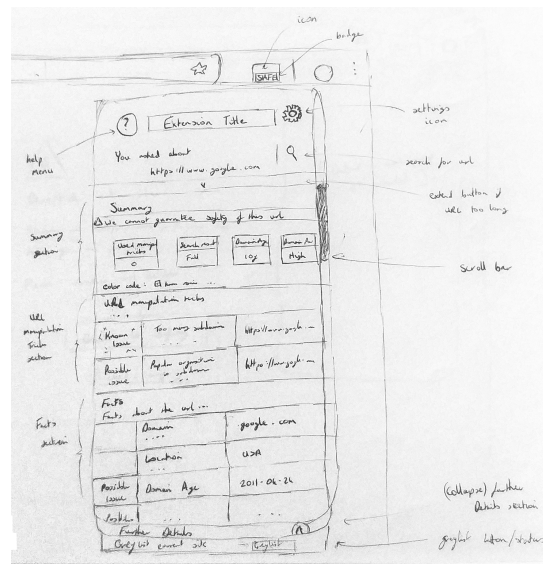 icon
badge
SAFE
? Extension Title
settings
icon
help
menu
You asked about
https://www.google.com
search for url
extend button if
URL too long
Summary
We cannot guarantee safety of this url
Summary
section
Used manip
tricks
0
Search result
Full
Domain Age
10y
High
scroll bar
color code:
URL manipulation tricks
URL
manipulation
Tricks
section
"Known"
issue
Too many subdomains
https://www.google...
Possible
issue
Popular organisation
in subdomain
https://www.google...
Facts
Facts about the url...
Facts
section
Domain
google.com
Location
USA
Possible
issue
Domain Age
2011-06-26
Further Details
(Collapse) further
Details section
Greylist current site
Greylist
greylist button/status